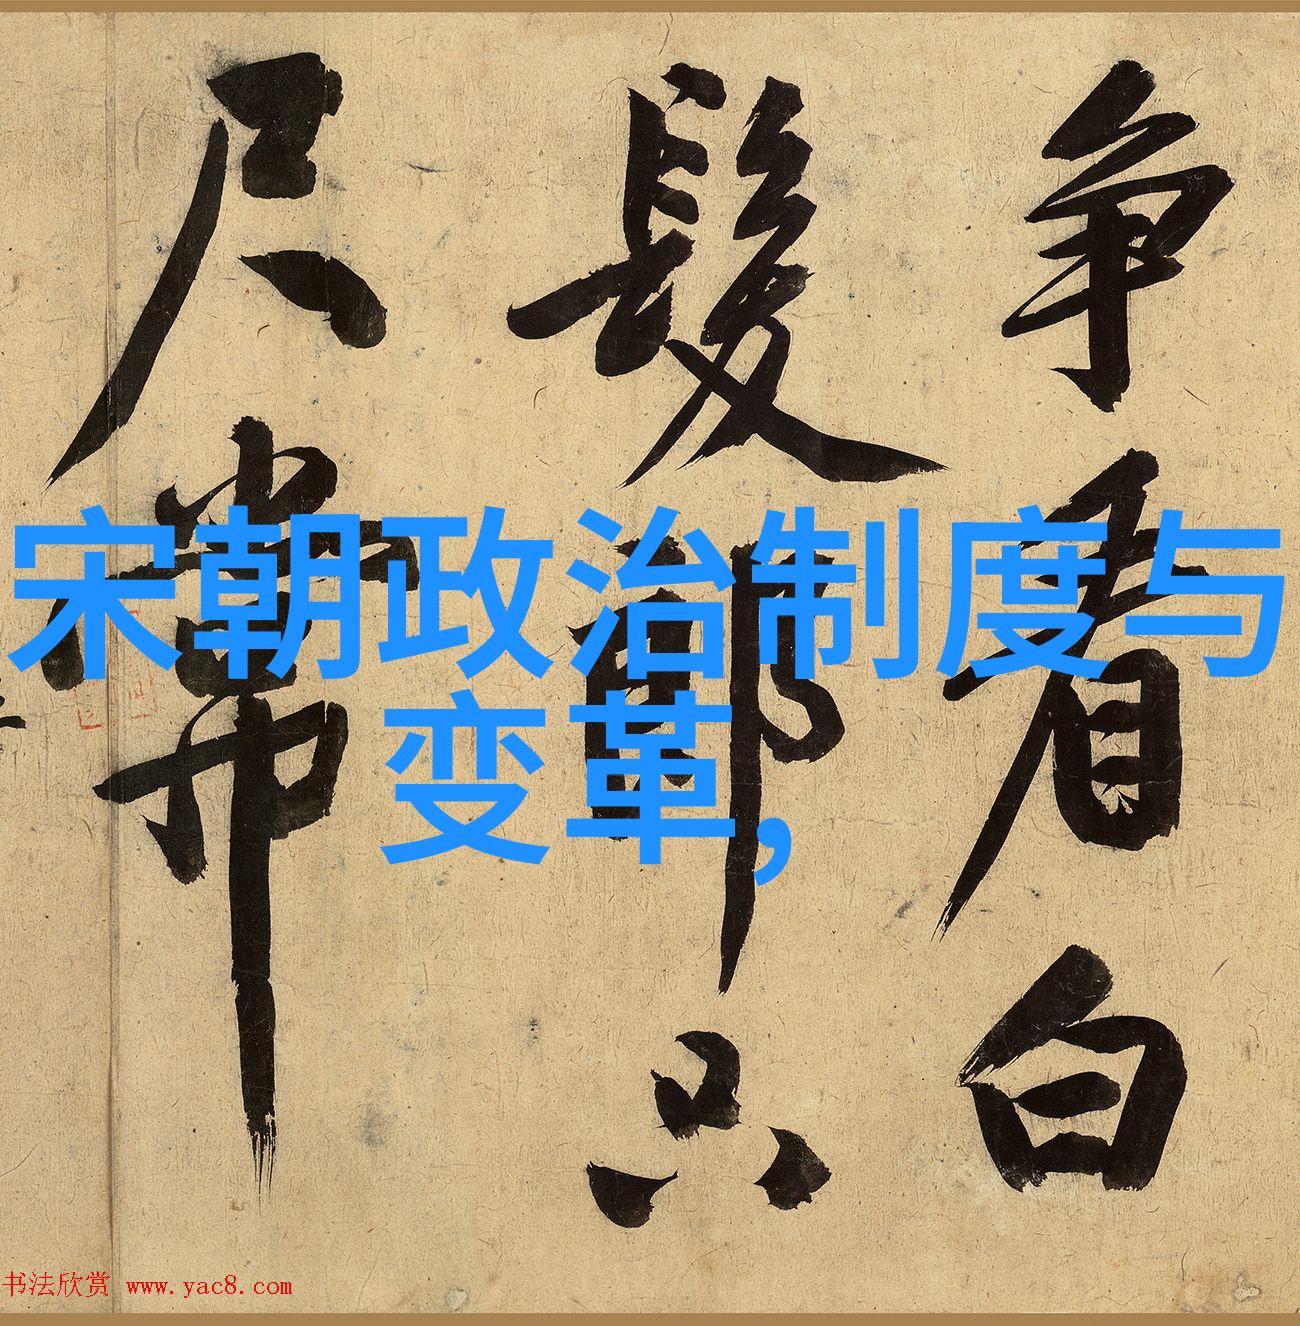 争看白
髮郎只
尺常
宋朝政治制度与
变革,
书法欣赏 www.yac8.com